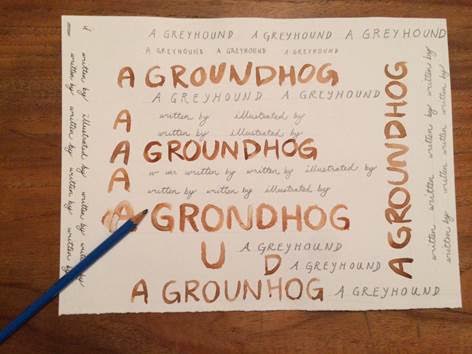 A GREYHOUND A GREYHOUND A GREYHOUND
A GREYHOUND A GREYHOUND A GREYHOUND
A GROUNDHOG
A GREYHOUND A GREYHOUND
A written by illustrated by
written by illustrated by
A GROUNDHOG
A w wr written by written by illustrated by
written by written by illustrated by
A GRONDHOG
U D A GREYHOUND
A GREYHOUND
A GROUNHOG A GREYHOUND
written by illustrated by written by
written by written by written by written by
A GROUNDHOG
written by written by written by
written by written by written by